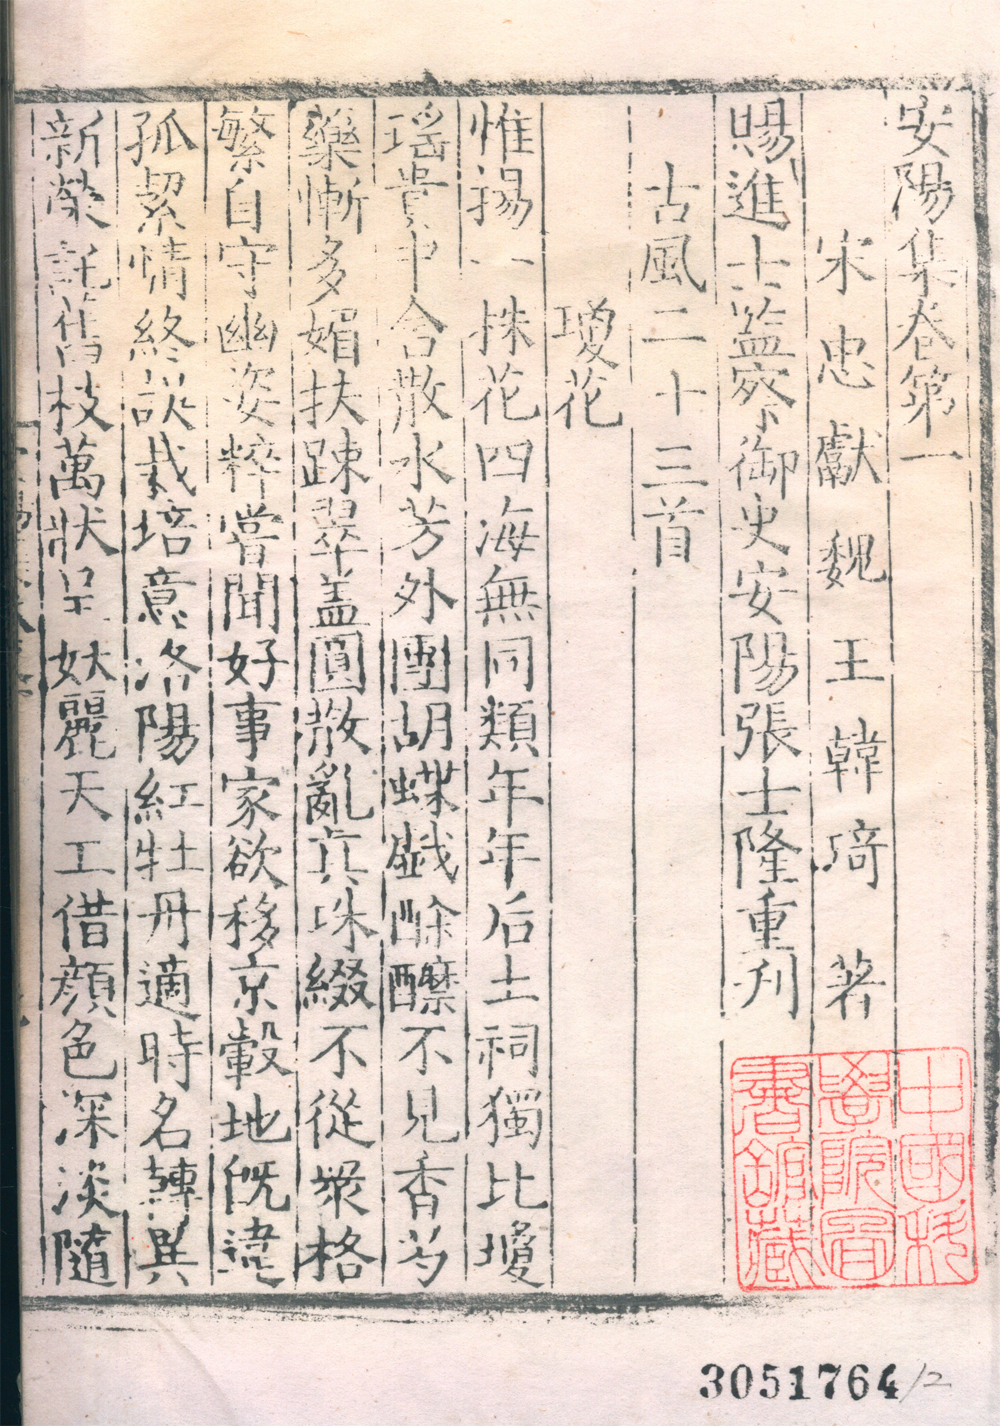 安陽集卷第一
宋忠獻魏王韓琦著
賜進士監察御史安陽張士隆重刋
古風二十三首
瓊花
惟揚一株花四海無同類年年后土祠獨比瓊
瑶貴中含散水芳外團胡蝶戯酴醿不見香芍
藥慚多媚扶踈翠盖圓散亂真珠綴不從衆格
繁自守幽姿粹嘗聞好事家欲移京轂地旣違
孤潔情終誤栽培意洛陽紅牡丹適時名轉異
新榮託舊枝萬狀呈妖麗天工借顔色深淡隨
中國科
學院圖
書舘藏
3051764/2